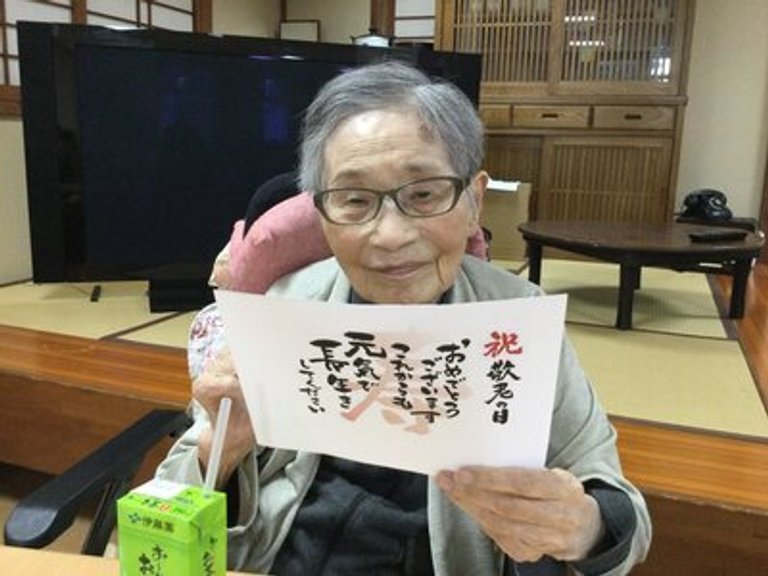 祝 敬老の日
おめでとう
ございます
これからも
元気で
長生き
してください
寿
伊藤園
お〜い
お